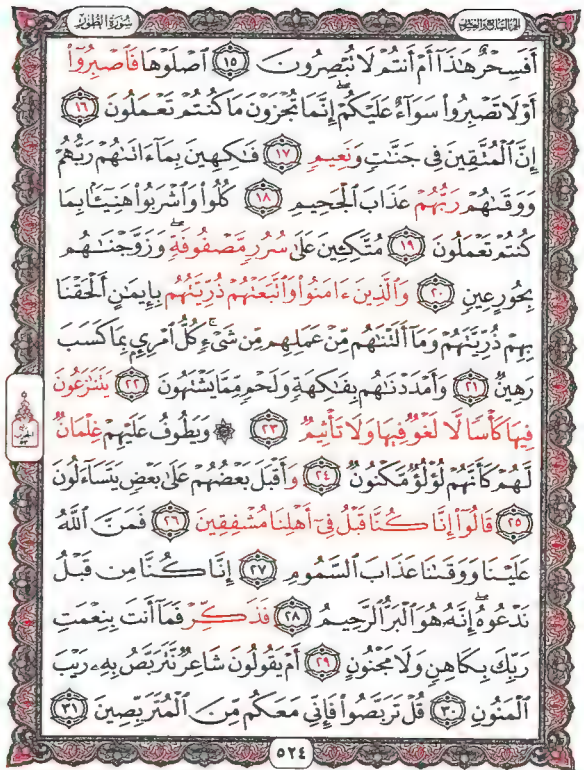 سُورَةُ الطُّورِ
الجزء السابع والعشرون
أَفَسِحْرٌ هَٰذَآ أَمْ أَنتُمْ لَا تُبْصِرُونَ ١٥ ٱصْلَوْهَا فَٱصْبِرُوٓا۟
أَوْ لَا تَصْبِرُوا۟ سَوَآءٌ عَلَيْكُمْ ۖ إِنَّمَا تُجْزَوْنَ مَا كُنتُمْ تَعْمَلُونَ ١٦
إِنَّ ٱلْمُتَّقِينَ فِى جَنَّٰتٍ وَنَعِيمٍ ١٧ فَٰكِهِينَ بِمَآ ءَاتَىٰهُمْ رَبُّهُمْ
وَوَقَىٰهُمْ رَبُّهُمْ عَذَابَ ٱلْجَحِيمِ ١٨ كُلُوا۟ وَٱشْرَبُوا۟ هَنِيٓـًٔۢا بِمَا
كُنتُمْ تَعْمَلُونَ ١٩ مُتَّكِـِٔينَ عَلَىٰ سُرُرٍ مَّصْفُوفَةٍ ۖ وَزَوَّجْنَٰهُم
بِحُورٍ عِينٍ ٢٠ وَٱلَّذِينَ ءَامَنُوا۟ وَٱتَّبَعَتْهُمْ ذُرِّيَّتُهُم بِإِيمَٰنٍ أَلْحَقْنَا
بِهِمْ ذُرِّيَّتَهُمْ وَمَآ أَلَتْنَٰهُم مِّنْ عَمَلِهِم مِّن شَىْءٍ ۚ كُلُّ ٱمْرِئٍۭ بِمَا كَسَبَ
رَهِينٌ ٢١ وَأَمْدَدْنَٰهُم بِفَٰكِهَةٍ وَلَحْمٍ مِّمَّا يَشْتَهُونَ ٢٢ يَتَنَٰزَعُونَ
فِيهَا كَأْسًا لَّا لَغْوٌ فِيهَا وَلَا تَأْثِيمٌ ٢٣ ۞ وَيَطُوفُ عَلَيْهِمْ غِلْمَانٌ
لَّهُمْ كَأَنَّهُمْ لُؤْلُؤٌ مَّكْنُونٌ ٢٤ وَأَقْبَلَ بَعْضُهُمْ عَلَىٰ بَعْضٍ يَتَسَآءَلُونَ
٢٥ قَالُوٓا۟ إِنَّا كُنَّا قَبْلُ فِىٓ أَهْلِنَا مُشْفِقِينَ ٢٦ فَمَنَّ ٱللَّهُ
عَلَيْنَا وَوَقَىٰنَا عَذَابَ ٱلسَّمُومِ ٢٧ إِنَّا كُنَّا مِن قَبْلُ
نَدْعُوهُ ۖ إِنَّهُۥ هُوَ ٱلْبَرُّ ٱلرَّحِيمُ ٢٨ فَذَكِّرْ فَمَآ أَنتَ بِنِعْمَتِ
رَبِّكَ بِكَاهِنٍ وَلَا مَجْنُونٍ ٢٩ أَمْ يَقُولُونَ شَاعِرٌ نَّتَرَبَّصُ بِهِۦ رَيْبَ
ٱلْمَنُونِ ٣٠ قُلْ تَرَبَّصُوا۟ فَإِنِّى مَعَكُم مِّنَ ٱلْمُتَرَبِّصِينَ ٣١
٥٢٤